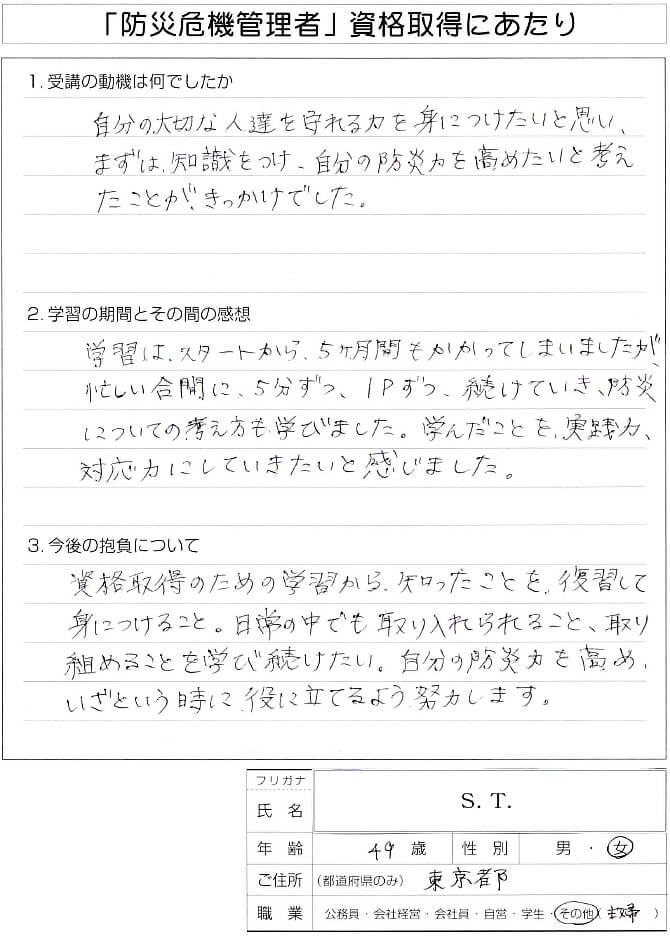 「防災危機管理者」資格取得にあたり
1. 受講の動機は何でしたか
自分の大切な人達を守れる力を身につけたいと思い、
まずは、知識をつけ、自分の防災力を高めたいと考え
たことが、きっかけでした。
2. 学習の期間とその間の感想
学習は、スタートから、5ヶ月間もかかってしまいましたが、
忙しい合間に、5分ずつ、1Pずつ、続けていき、防災
についての考え方も、学びました。学んだことを、実践力、
対応力にしていきたいと感じました。
3. 今後の抱負について
資格取得のための学習から、知ったことを、復習して
身につけること。日常の中でも取り入れられること、取り
組めることを学び続けたい。自分の防災力を高め、
いざという時に、役に立てるよう、努力します。
フリガナ
氏名 S. T.
年齢 49 歳 性別 男・女
ご住所 (都道府県のみ) 東京都
職業 公務員・会社経営・会社員・自営・学生・その他(主婦)